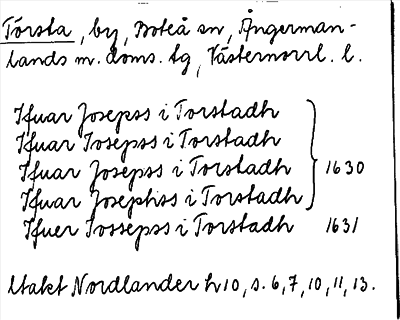 Törsta, by, Boteå sn, Ångerman-
lands m. doms. tg, Västernorrl. l.
Ifuar Josepss i Torstadh
Ifuar Iosepss i Torstadh
Ifuar Josepss i Torstadh 1630
Ifuar Josephss i Torstadh
Ifuer Iossepss i Torstadh 1631
Utakt Nordlander h 10, s. 6, 7, 10, 11, 13.